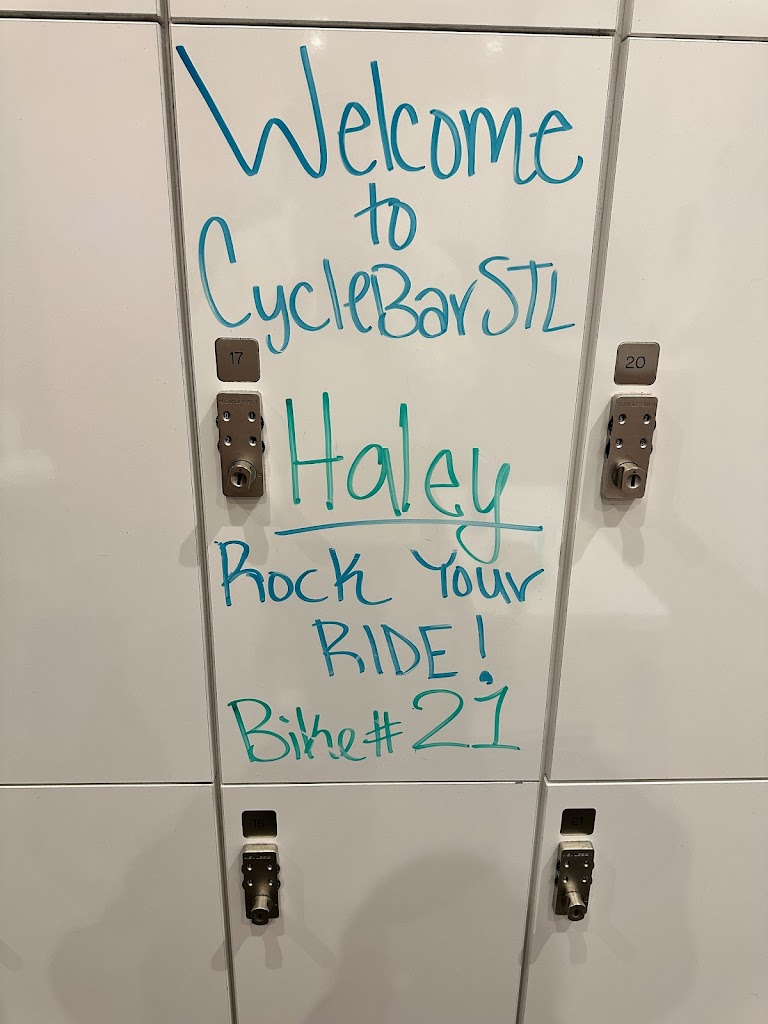 Welcome
to
CycleBarSTL
17
20
Haley
Rock Your
RIDE!
Bike# 21
18
21